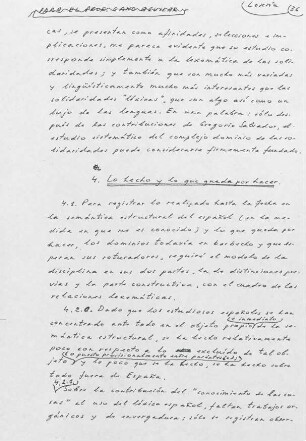 Coseriu 26
cas, se presentan como afinidades, selecciones o im-
plicaciones, me parece evidente que su estudio co-
rresponde simplemente a la lexemática de las soli-
daridades; y también que son mucho más variadas
y lingüísticamente mucho más interesantes que las
solidaridades "léxicas", que son algo así como un
lujo de las lenguas. En una palabra: sólo des-
pués de las contribuciones de Gregorio Salvador, el
estudio sistemático del complejo dominio de las so-
lidaridades puede considerarse firmemente fundado.
4. Lo hecho y lo que queda por hacer.
4.1. Para registrar lo realizado hasta la fecha en
la semántica estructural del español (en la me-
dida en que me es conocido) y lo que queda por
hacer, los dominios todavía en barbecho y que es-
peran sus roturadores, seguiré el modelo de la
disciplina en sus dos partes, la de distinciones pre-
vias y la parte constructiva, con el cuadro de las
relaciones lexemáticas.
4.2.0. Dado que los estudiosos españoles se han
(e inmediato)
concentrado ante todo en el objeto propio de la se-
mántica estructural, se ha hecho relativamente
poco con respecto a lo excluido de tal ob-
(lo puesto provisionalmente entre paréntesis)
jeto y lo poco que se ha hecho, se ha hecho sobre
todo fuera de España.
4.2.1.
Sobre la contribución del "conocimiento de las co-
sas" al uso del léxico español, faltan trabajos or-
gánicos y de envergadura; sólo se registran obser-